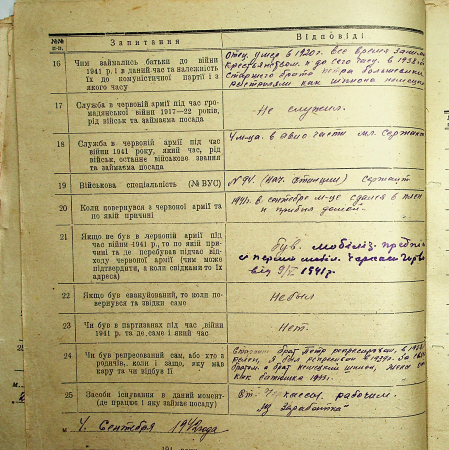 №№ п-п.
Запитання
Відповіді
16
Чим займались батьки до війни
1941 р. і в даний час та належність
їх до комуністичної портії і з
якого часу
Отец умер в 1920г. Все время
Крестьянством. и до сего часу. в 1938
старшего брата Петра большевики
расстреляли как шпиона немецкого
17
Служба в червоній армії під час гро-
мадянської війни 1917—22 років,
рід військ та займаєма посада
Не служил.
18
Служба в червоній армії під час
війни 1941 року, який час, рід
військ, останнє військове звання
та займаєма посада
в авио части мл. Сержант
19
Військова спеціальність (№ ВУС)
(Нач. Станции) Сержант
20
Коли ковернувся з червоної армії та
по якій причині
1941г. в сентябре м-це сдался в плен
и прибыл домой.
21
Якщо не був в червоній армії під
час війни 1941 р., то по якій при-
чині та де перебував підчас відхо-
ходу червоної армії (чим може
підтвердити, а коли свідками то їх
адреса)
Був мобіліз.
від 1941р.
22
Якщо був евакуйований, то коли по-
вернувся та звідки саме
Не был
23
Чи був в партизанах під час війни
1941 р. та де саме і який час
Нет.
24
Чи був репресований сам, або хто з
родичів, коли і защо, яку мав
кару та чи відбув її
брат Петр репресирован, в 1938
Я был репресирован в 1939г. За
братом. а брат немецкий шпион,
25
Засоби існування в данний момент-
(де працює і яку займає посаду)
рабочим.
Заработка"
м
4. Сентября 1942 года